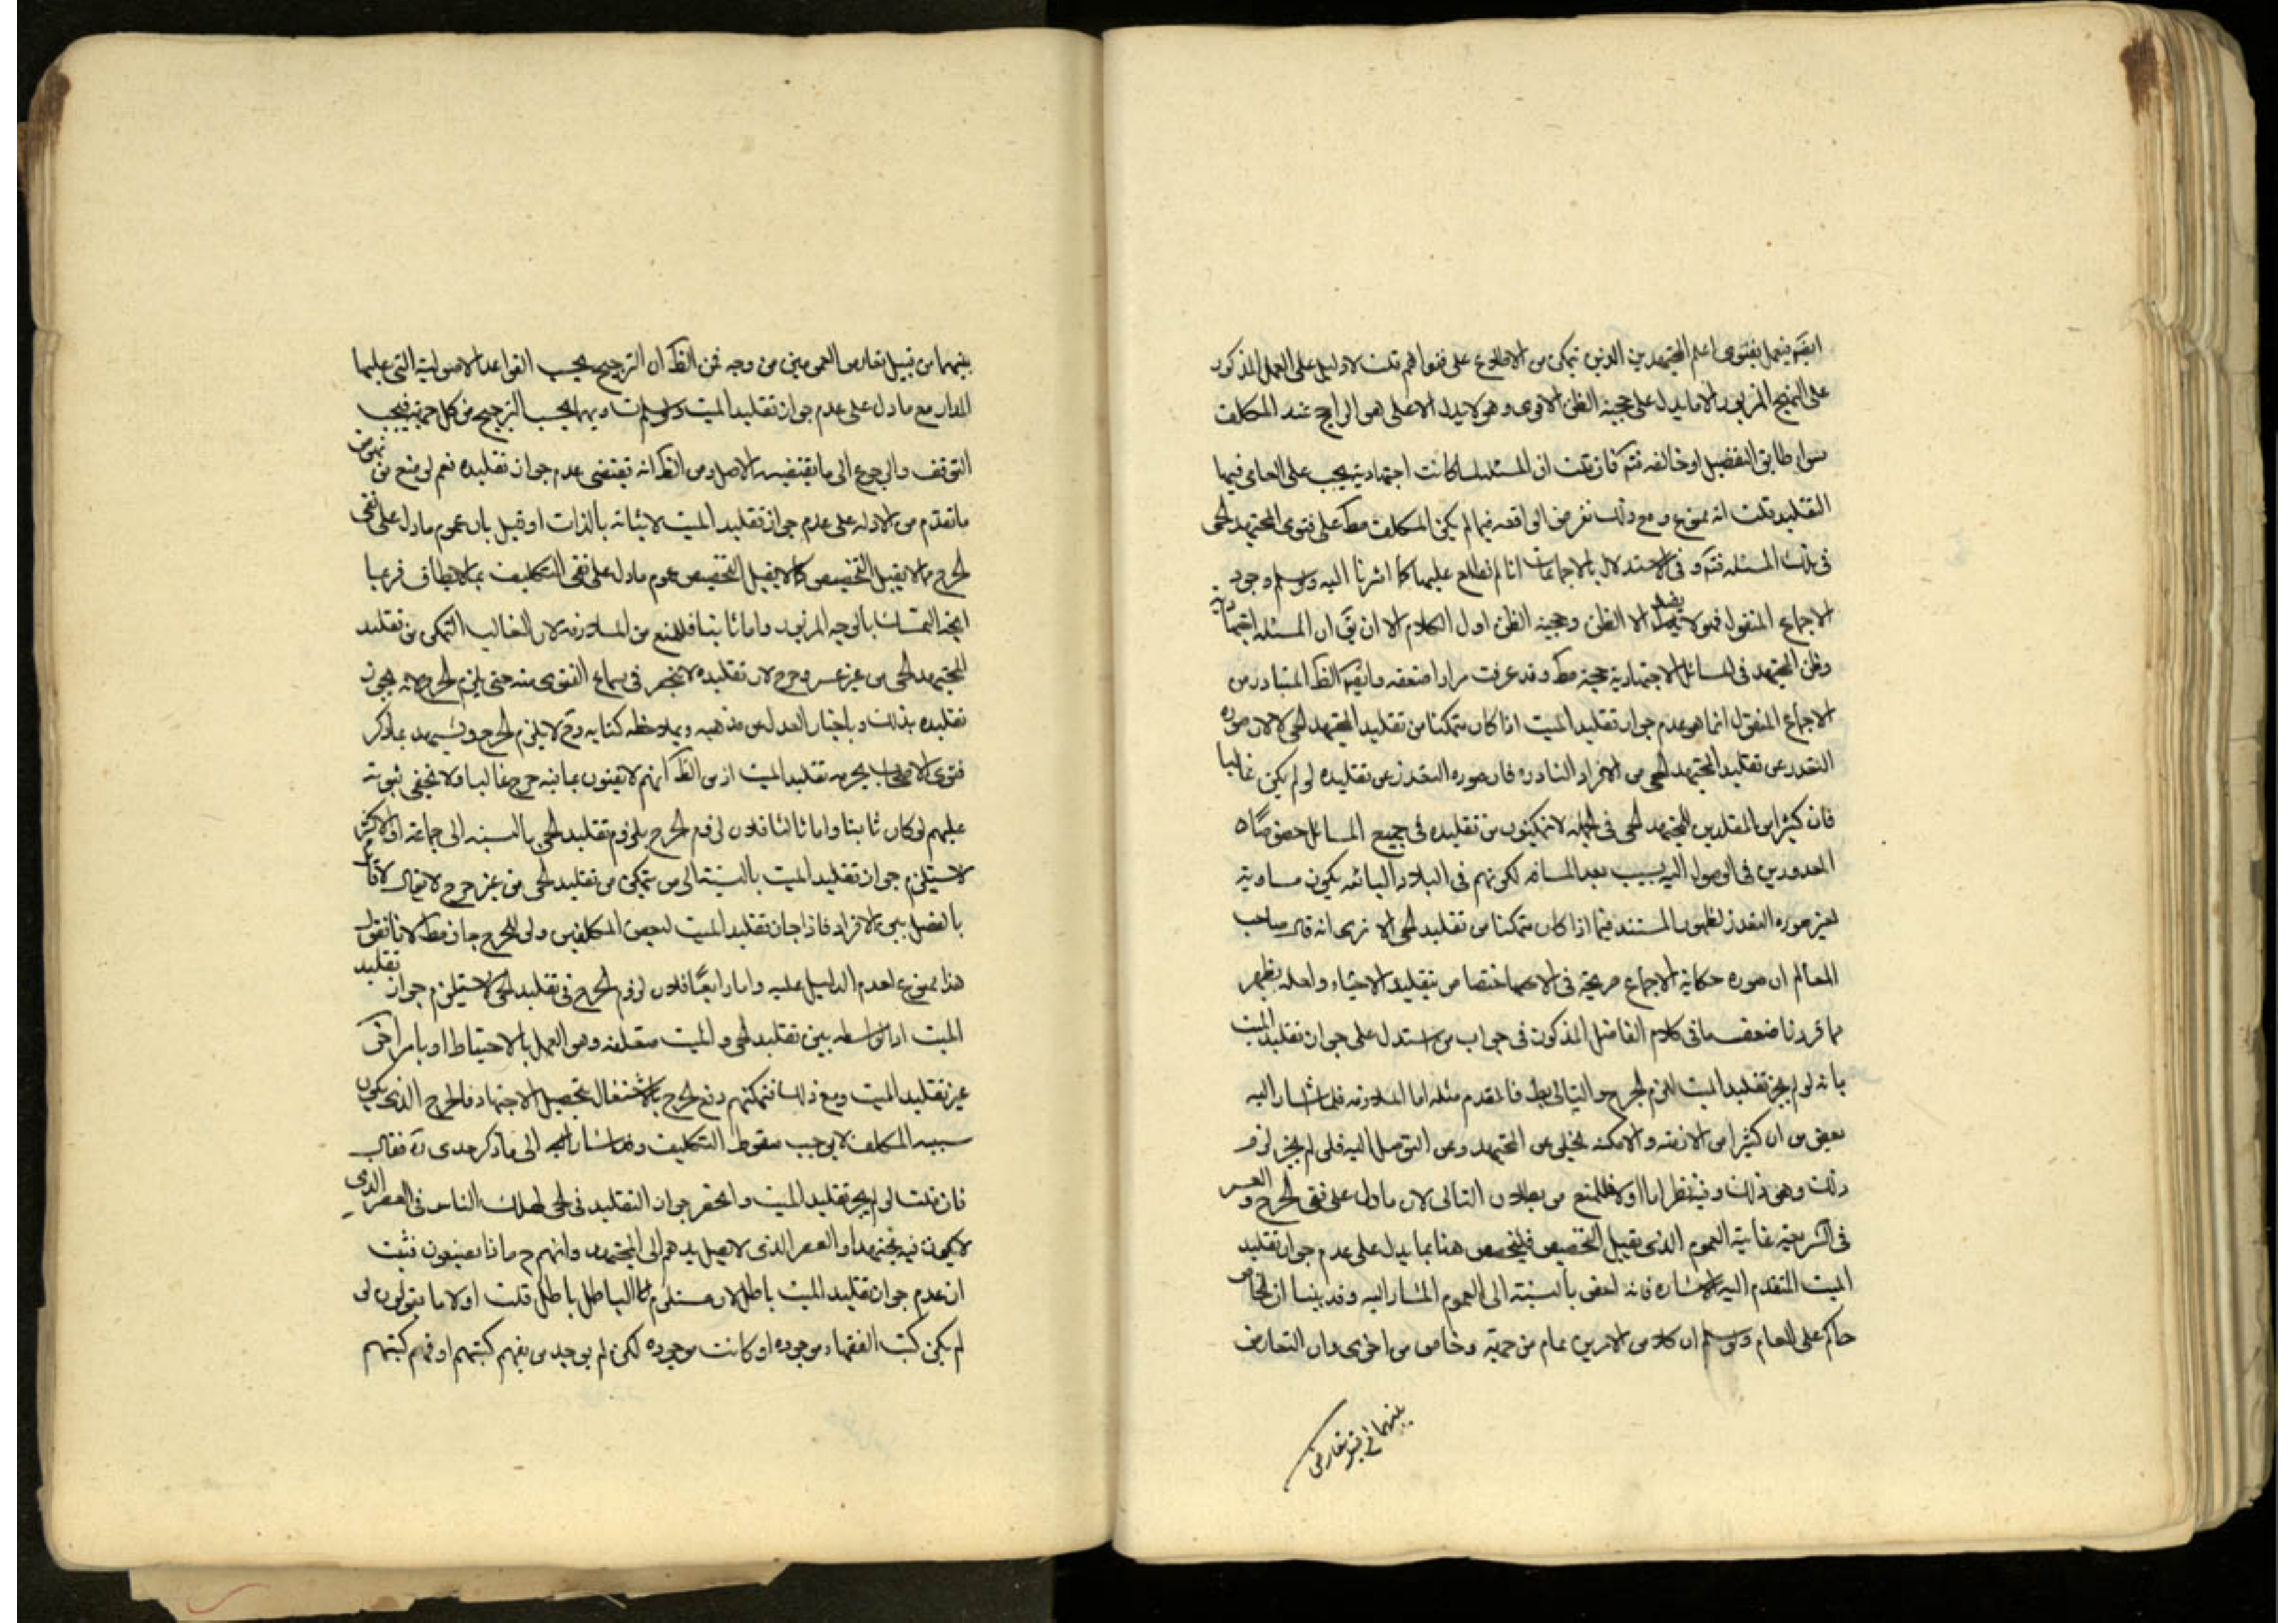 ايضا فيعمل بفتوى اعلم المجتهدين الذين تمكن من الاطلاع على فتواهم قلت لا دليل على العمل المذكور
على النهج المزبور الا ما يدل على حجية الظن الاقوى وهو لا يدل الا على هو الراجح عند المكلف
سواء طابق التفضيل او خالفه فتم فان قلت ان المسئلة لما كانت اجتهادية يجب على العامى فيها
التقليد قلت انه ممنوع ومع ذلك نفرض الواقعه فيما لم يكن المكلف مط على فتوى المجتهد الحى
فى تلك المسئلة فتم وفى الاستدلال بالاجماعات انا لم نطلع عليها كما اشرنا اليه ولو سلم وجود
الاجماع المنقول فهو لا يفيد الا الظن وحجية الظن اول الكلام الا ان يق ان المسئله اجتهادية
وظن المجتهد فى المسائل الاجتهادية حجة مط وقد عرفت مرارا ضعفه وايضا الظ المتبادر من
الاجماع المنقول انما هو عدم جواز تقليد الميت اذا كان متمكنا من تقليد المجتهد الحى لان صوره
التعذر عن تقليد المجتهد الحى من الافراد النادره فان صوره التعذر عن تقليده لو لم يكن غالبا
فان كثيرا من المقلدين للمجتهد الحى فى الجمله لا يتمكنون من تقليده فى جميع المسائل خصوصا
المعذورين فى الوصول اليه بسبب بعد المسافه لكونهم فى البلاد النائيه يكون مساوية
لغير صوره التعذر لظهور المستند فيما اذا كان متمكنا من تقليد الحى الا ترى انه قال صاحب
المعالم ان صوره حكاية الاجماع صريحة فى الاختصاص بتقليد الاحياء ولعله يظهر
مما قررنا ضعف ما فى كلام الفاضل المذكور فى جواب من استدل على جواز تقليد الميت
بانه لو لم يجز تقليد الميت للزم الحرج والتالى بط فالمقدم مثله اما الملازمه فلما اشار اليه
بعض من ان كثيرا من الازمنه والامكنه تخلى عن المجتهد وعن التوصل اليه فلو لم يجز لزم
ذلك وهى ذلك وفيه نظر اما اولا فللمنع من بطلان التالى لان ما دل على نفى الحرج والعسر
فى الشريعة غايته العموم الذى يقبل التخصيص فليخصص هنا بما يدل على عدم جواز تقليد
الميت المتقدم اليه الاشاره فانه اخص بالنسبة الى العموم المشار اليه وقد بينا ان الخاص
حاكم على العام ولو سلم ان كلا من الامرين عام من جهة وخاص من اخرى وان التعارض
بينهما من قبيل تعارض
بينهما من قبيل تعارض العمومين من وجه فمن الظ ان الترجيح بحسب القواعد الاصولية التى عليها
المدار مع ما دل على عدم جواز تقليد الميت ولو سلم تساويهما بحسب الترجيح من كل جهة فيجب
التوقف والرجوع الى ما يقتضيه الاصل ومن الظ انه يقتضى عدم جواز تقليده نعم لو منع من نهوض
ما تقدم من الادله على عدم جواز تقليد الميت لاثباته بالذات او قيل بان عموم ما دل على نفى
الحرج مما لا يقبل التخصيص كما لا يقبل التخصيص عموم ما دل على نفى التكليف بما لا يطاق فربما
اتجه التمسك بالوجه المزبور واما ثانيا فللمنع من الملازمه لان الغالب التمكن من تقليد
المجتهد الحى من غير عسر وحرج لان تقليده لا ينحصر فى سماع الفتوى منه حتى يلزم الحرج لانه يجوز
تقليده بذلك وباخبار العدل عن مذهبه وبملاحظه كتابه وح لا يلزم الحرج ويشهد بما ذكر
فتوى الاصحاب بحرمه تقليد الميت اذ من الظ انهم لا يفتون بما فيه حرج غالبا ولا يخفى ثبوته
عليهم لو كان ثابتا واما ثالثا فلان لزوم الحرج بلزوم تقليد الحى بالنسبه الى جماعة او الاكثر
لا يستلزم جواز تقليد الميت بالنسبة الى من يتمكن من تقليد الحى من غير حرج لا يقال لا قائل
بالفصل بين الافراد فاذا جاز تقليد الميت لبعض المكلفين ولو للحرج جاز مط لانا نقول
هذا ممنوع لعدم الدليل عليه واما رابعا فلان لزوم الحرج فى تقليد الحى لا يستلزم جواز تقليد
الميت اذ الواسطه بين تقليد الحى والميت متعلقه وهو العمل بالاحتياط او بامر اخر
غير تقليد الميت ومع ذلك فتمكنهم دفع الحرج بالاشتغال بتحصيل الاجتهاد فالحرج الذى يكون
سببه المكلف لا يوجب سقوط التكليف وقد اشار الى ما ذكر جدى ره فقال
فان قلت لو لم يجز تقليد الميت وانحصر جواز التقليد فى الحى لهلك الناس فى العصر الذى
لا يكون فيه مجتهد او العصر الذى لا يصل يدهم الى المجتهد وانهم ح ماذا يصنعون فثبت
ان عدم جواز تقليد الميت باطل لان مستلزم الباطل باطل قلت اولا ما يقولون لو
لم يكن كتب الفقهاء موجوده او كانت موجوده لكن لم يوجد من يفهم كتبهم او فهم كتبهم